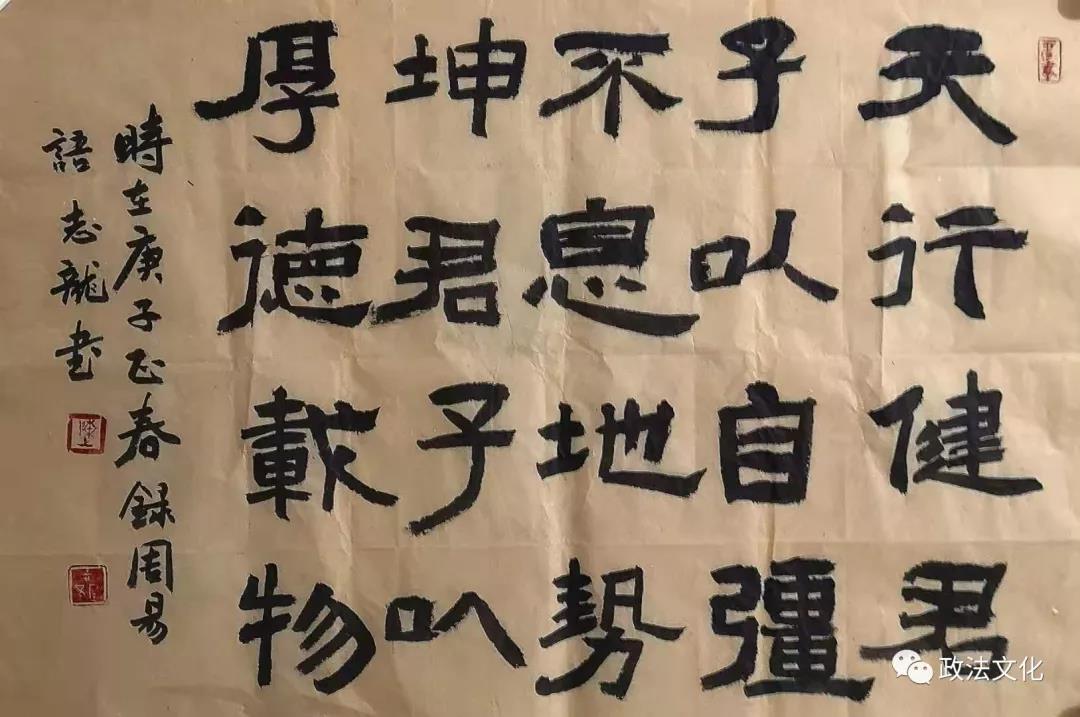 天行健君
子以自彊
不息地势
坤君子以
厚德載物
時在庚子正春錄周易
語志龍书
政法文化